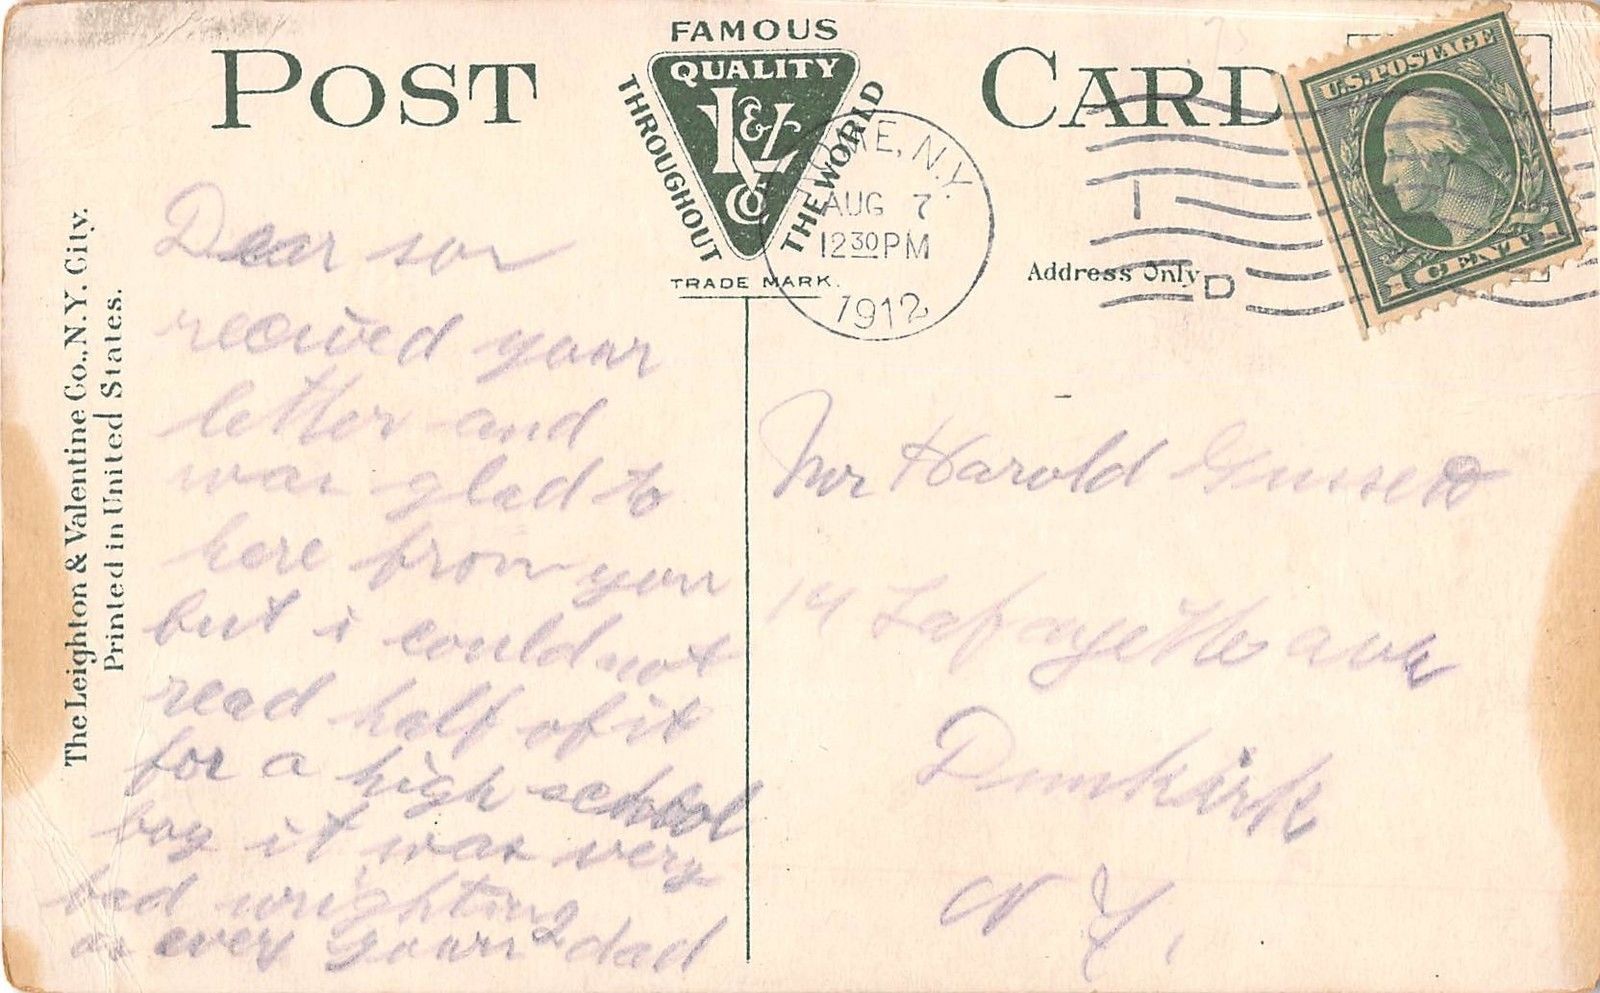 POST CARD
FAMOUS
QUALITY
THROUGHOUT
THE WORLD
L & V
Co
TRADE MARK.
N.Y.
AUG 7
12 30 PM
1912
1
D
U.S. POSTAGE
1 CENT 1
Address Only
The Leighton & Valentine Co., N.Y. City.
Printed in United States.
Dear son
recived your
letter and
was glad to
here from you
but i could not
read half of it
for a high school
boy it was very
bad wrighting
as ever your dad
Mr Harold
14 Lafayette ave
Dunkirk
N Y.